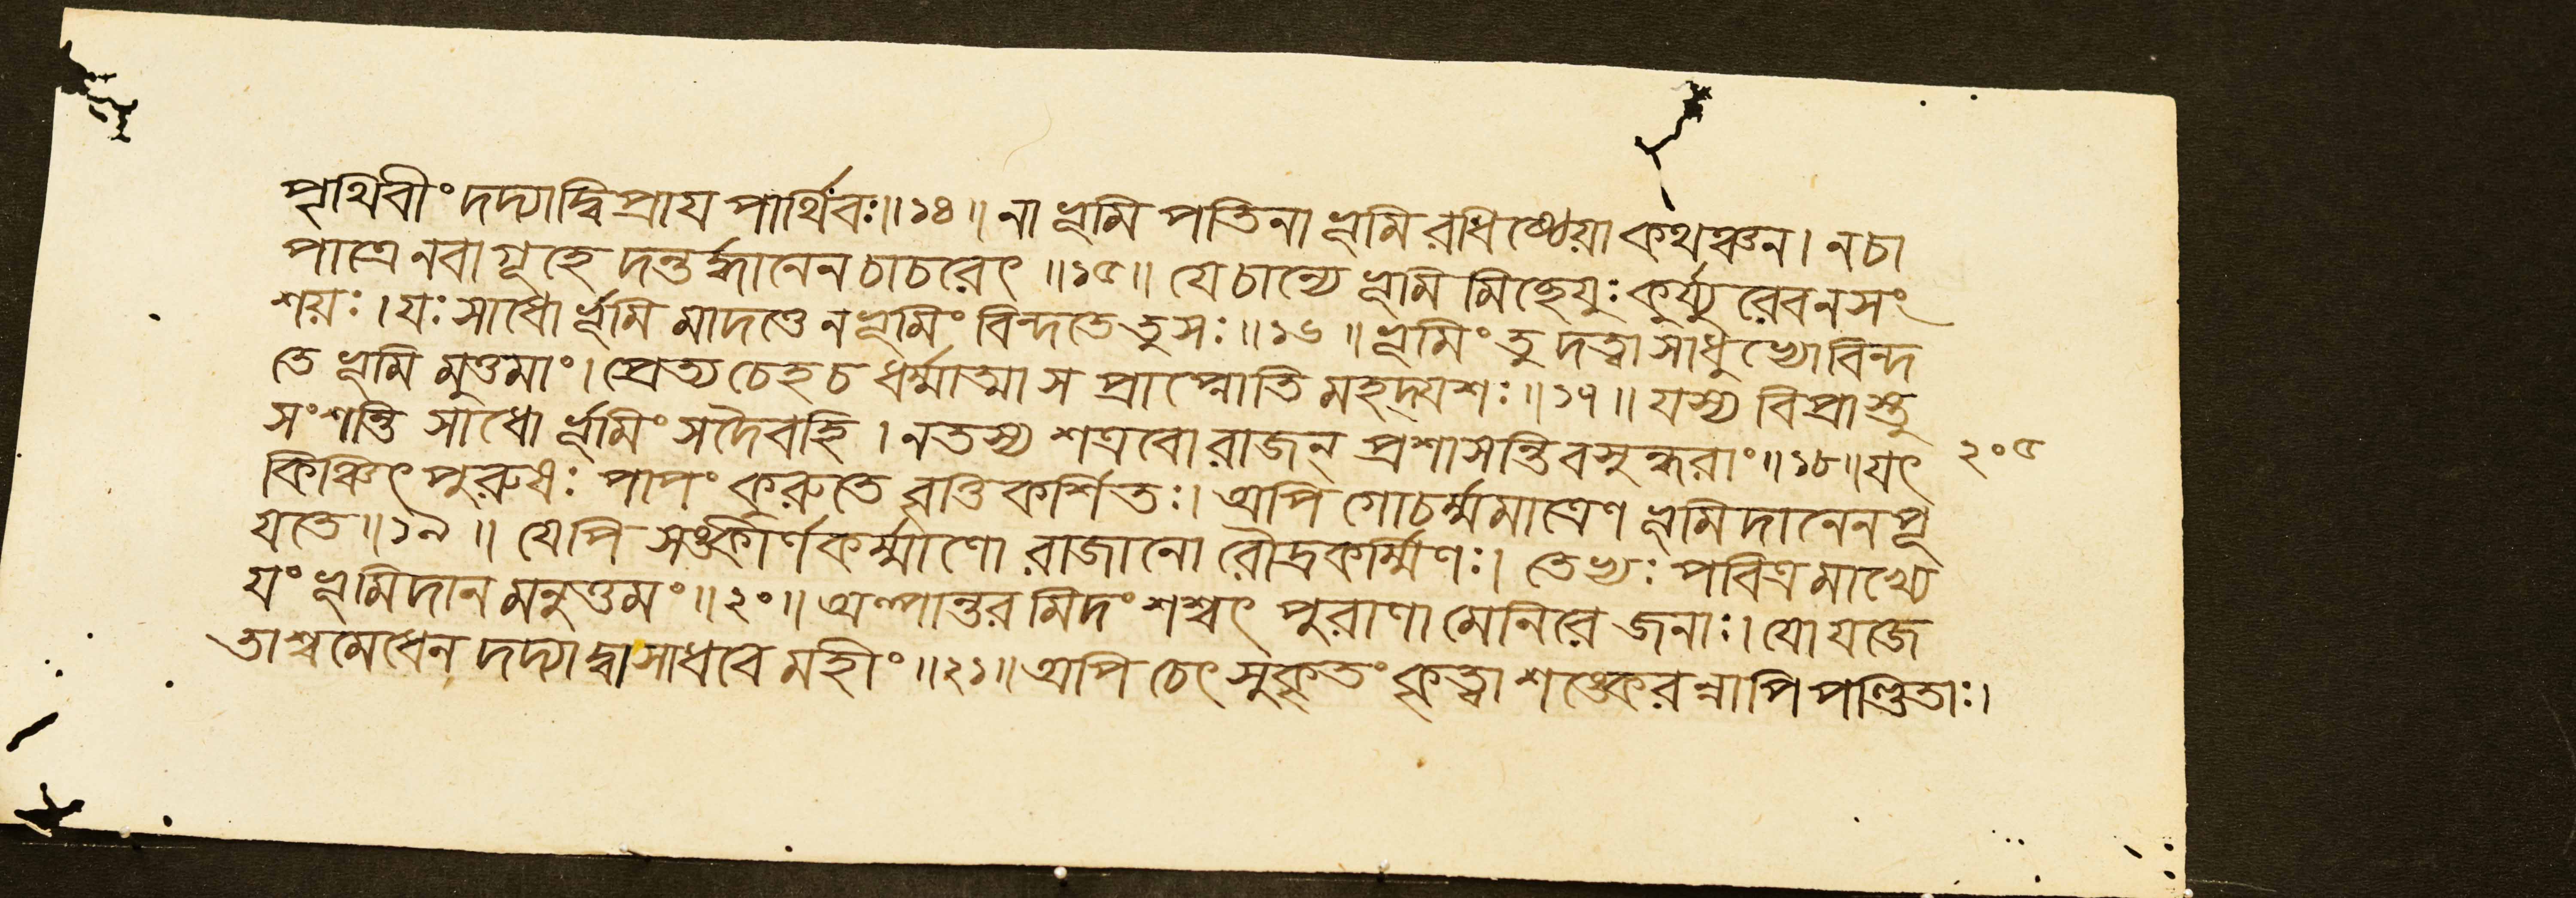 পৃথিবীং দদ্যাদ্বিপ্রায পার্থিবঃ॥১৪॥ না ভূমি পতিনা ভূমি রধিষ্ঠেয়া কথঞ্চন। ন চা
পাত্রে ন বা গূহে দন্তর্দ্ধানেন চাচরেৎ ॥১৫॥ যে চান্যে ভূমি মিচ্ছেযুঃ কুর্য্যু রেব ন সং
শয়ঃ। যঃ সাধো র্ভূমি মাদত্তে ন ভূমিং বিন্দতে তু সঃ॥১৬॥ ভূমিং তু দত্বা সাধুভ্যো বিন্দ
তে ভূমি মুত্তমাং। প্রেত্য চেহ চ ধর্ম্মাত্মা স প্রাপ্নোতি মহদ্যশঃ॥১৭॥ যস্য বিপ্রাস্তু
সংশন্তি সাধো র্ভূমিং সদৈব হি। ন তস্য শত্রবো রাজন্ প্রশাসন্তি বসুন্ধরাং॥১৮॥ যৎ
২০৫
কিঞ্চিৎ পুরুষঃ পাপং কুরুতে বৃত্তি কর্শিতঃ। অপি গোচর্ম্ম মাত্রেণ ভূমি দানেন পূ
যতে॥১৯॥ যেপি সঙ্কীর্ণ কর্ম্মাণো রাজানো রৌদ্রকর্ম্মিণঃ। তেভ্যঃ পবিত্র মাখ্যে
যং ভূমিদান মনুত্তমং॥২০॥ অল্পান্তর মিদং শশ্বৎ পুরাণা মেনিরে জনাঃ। যো যজে
তাশ্বমেধেন দদ্যাদ্বা সাধবে মহীং॥২১॥ অপি চেৎ সুকৃতং কৃত্বা শঙ্কেরন্নাপি পণ্ডিতাঃ।